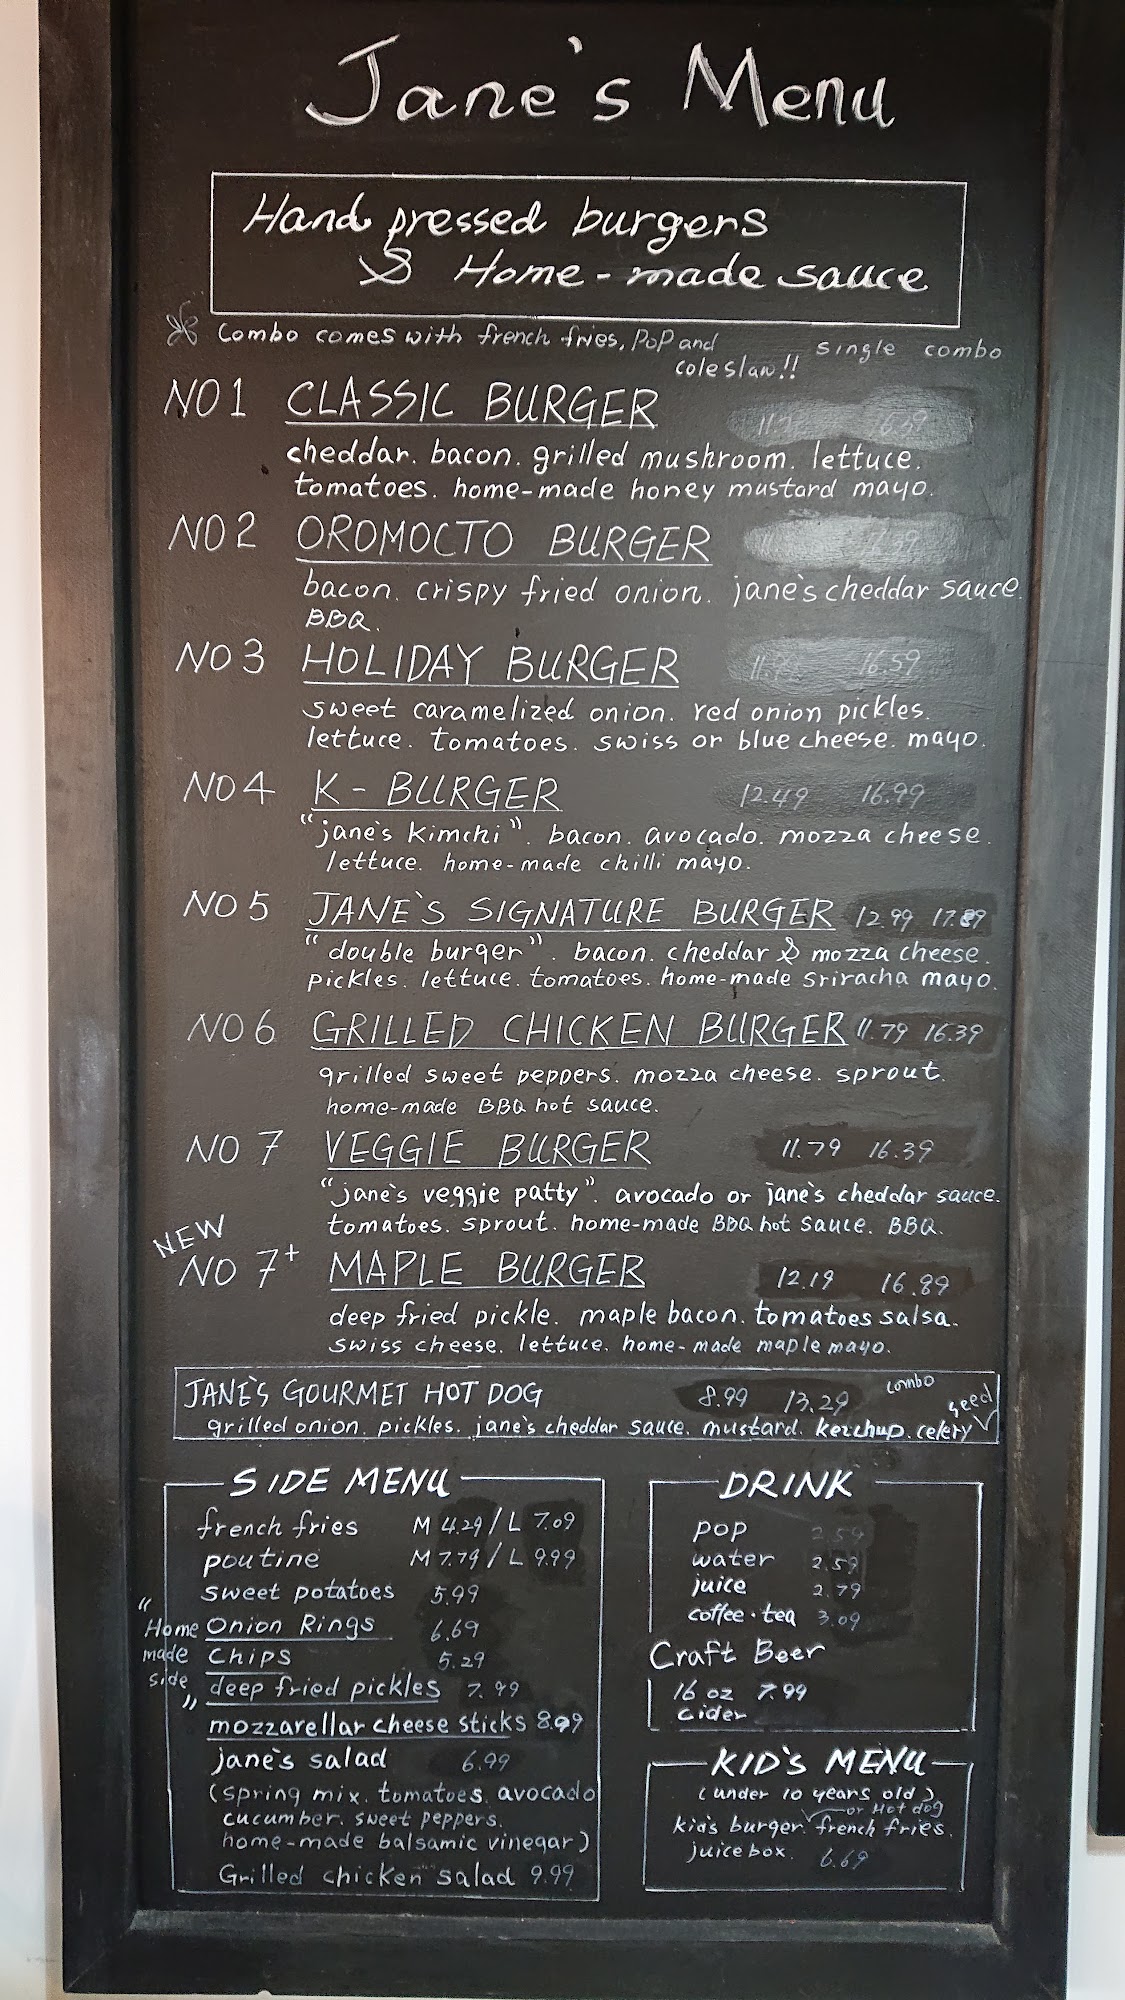 Jane's Menu
Hand pressed burgers
& Home-made sauce
Combo comes with french fries, pop and
coleslaw!!
single combo
NO 1 CLASSIC BURGER
cheddar. bacon. grilled mushroom. lettuce.
tomatoes. home-made honey mustard mayo.
NO 2 OROMOCTO BURGER
bacon. crispy fried onion. jane's cheddar sauce.
BBQ.
NO 3 HOLIDAY BURGER 16.59
sweet caramelized onion. red onion pickles.
lettuce. tomatoes. swiss or blue cheese. mayo.
NO 4 K-BURGER 12.49 16.99
"jane's kimchi". bacon. avocado. mozza cheese.
lettuce. home-made chilli mayo.
NO 5 JANE'S SIGNATURE BURGER 12.99 17.89
"double burger". bacon. cheddar & mozza cheese.
pickles. lettuce. tomatoes. home-made sriracha mayo.
NO 6 GRILLED CHICKEN BURGER 11.79 16.39
grilled sweet peppers. mozza cheese. sprout.
home-made BBQ hot sauce.
NO 7 VEGGIE BURGER 11.79 16.39
"jane's veggie patty". avocado or jane's cheddar sauce.
tomatoes. sprout. home-made BBQ hot sauce. BBQ.
NEW
NO 7+ MAPLE BURGER 12.19 16.89
deep fried pickle. maple bacon. tomatoes salsa.
swiss cheese. lettuce. home-made maple mayo.
JANE'S GOURMET HOT DOG 8.99 13.29 combo
grilled onion. pickles. jane's cheddar sauce. mustard. ketchup. celery seed
SIDE MENU
french fries M 4.29 / L 7.09
poutine M 7.79 / L 9.99
sweet potatoes 5.99
"Home made side"
Onion Rings 6.69
Chips 5.29
deep fried pickles 7.99
mozzarellar cheese sticks 8.99
jane's salad 6.99
(spring mix. tomatoes. avocado
cucumber. sweet peppers.
home-made balsamic vinegar)
Grilled chicken salad 9.99
DRINK
pop 2.59
water 2.59
juice 2.79
coffee · tea 3.09
Craft Beer
16 oz 7.99
cider
KID'S MENU
(under 10 years old)
or Hot dog
kid's burger. french fries.
juice box. 6.69